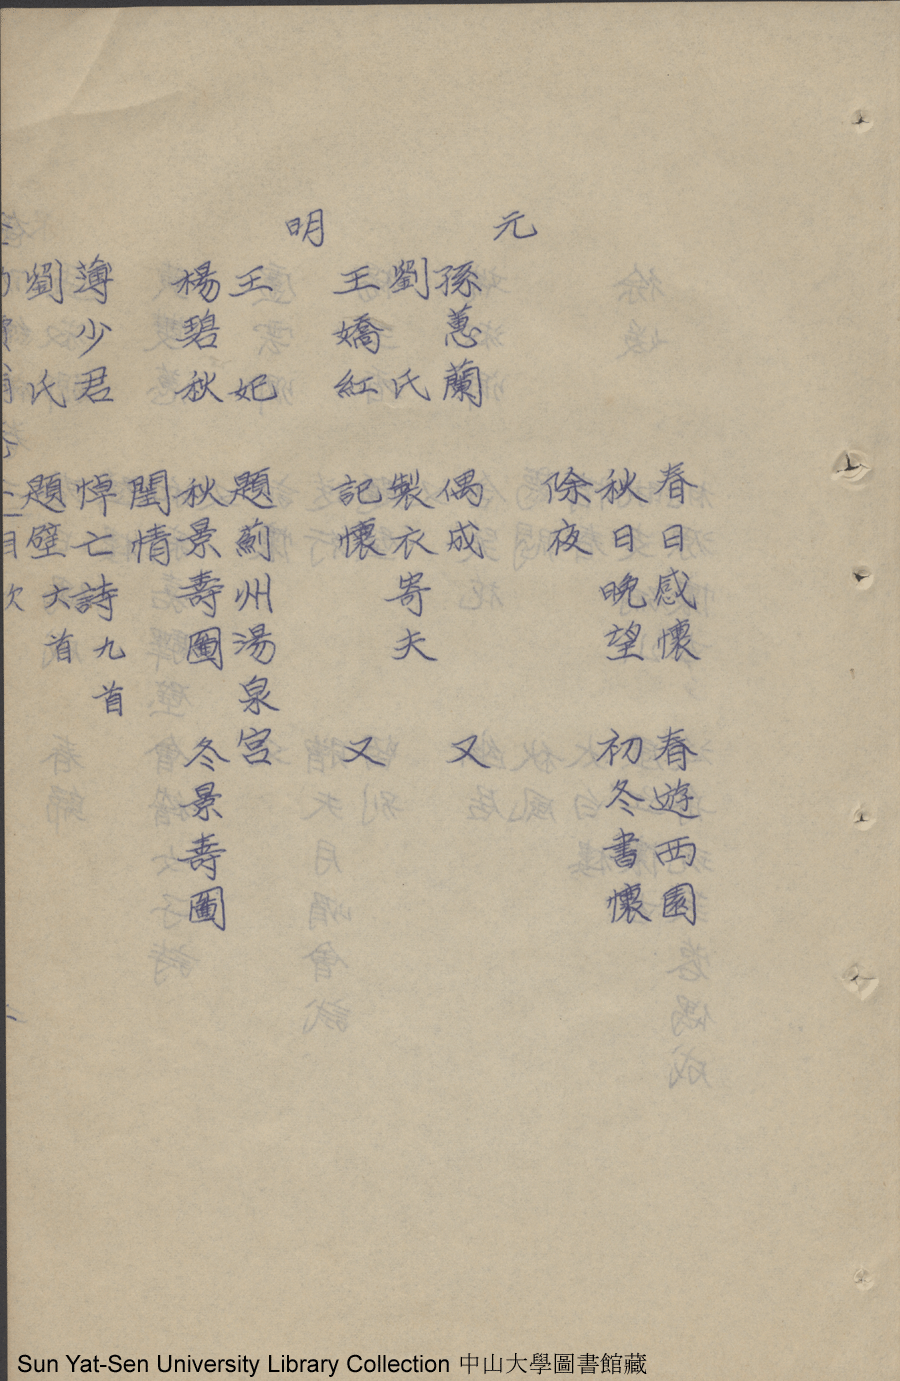 春日感懷　春遊西園
秋日晚望　初冬書懷
除夜
元
孫蕙蘭　偶成　又
劉氏　製衣寄夫
王嬌紅　記懷　又
明
王妃　題薊州湯泉宮
楊碧秋　秋景壽圖　冬景壽圖
閨情
薄少君　悼亡詩九首
劉氏　題壁六首
目次
Sun Yat-Sen University Library Collection 中山大學圖書館藏